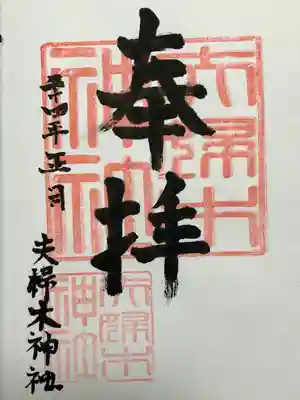 奉拝
十四年正月
夫婦木神社
夫婦木
神社
夫婦木
神社